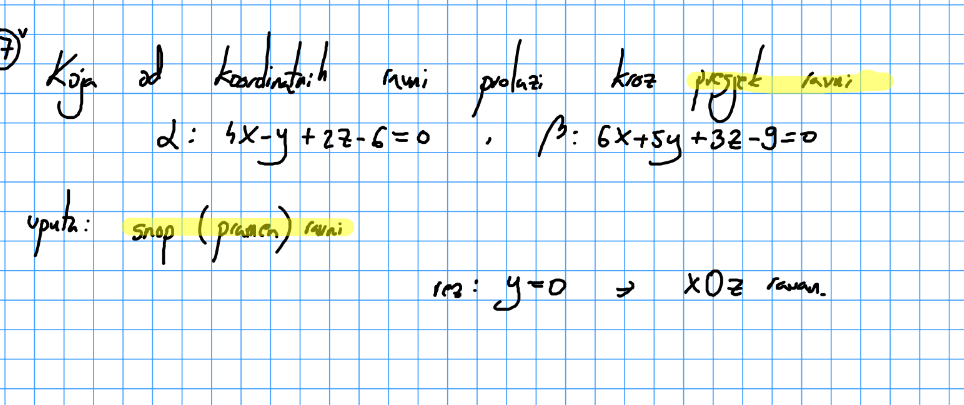 7 Koja od koordinatnih ravni prolazi kroz presjek ravni
α: 4x-y+2z-6=0 , β: 6x+5y+3z-9=0
uputa: snop (pramen) ravni
rez: y=0 → xOz ravan.